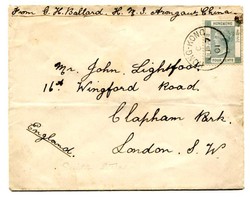 From C. H. Ballard, H. M. S. Arrogant China
HONG-KONG
HONGKONG
Mr. John Lightfoot
16th Wingford Road.
Clapham Park.
London. S. W
England.